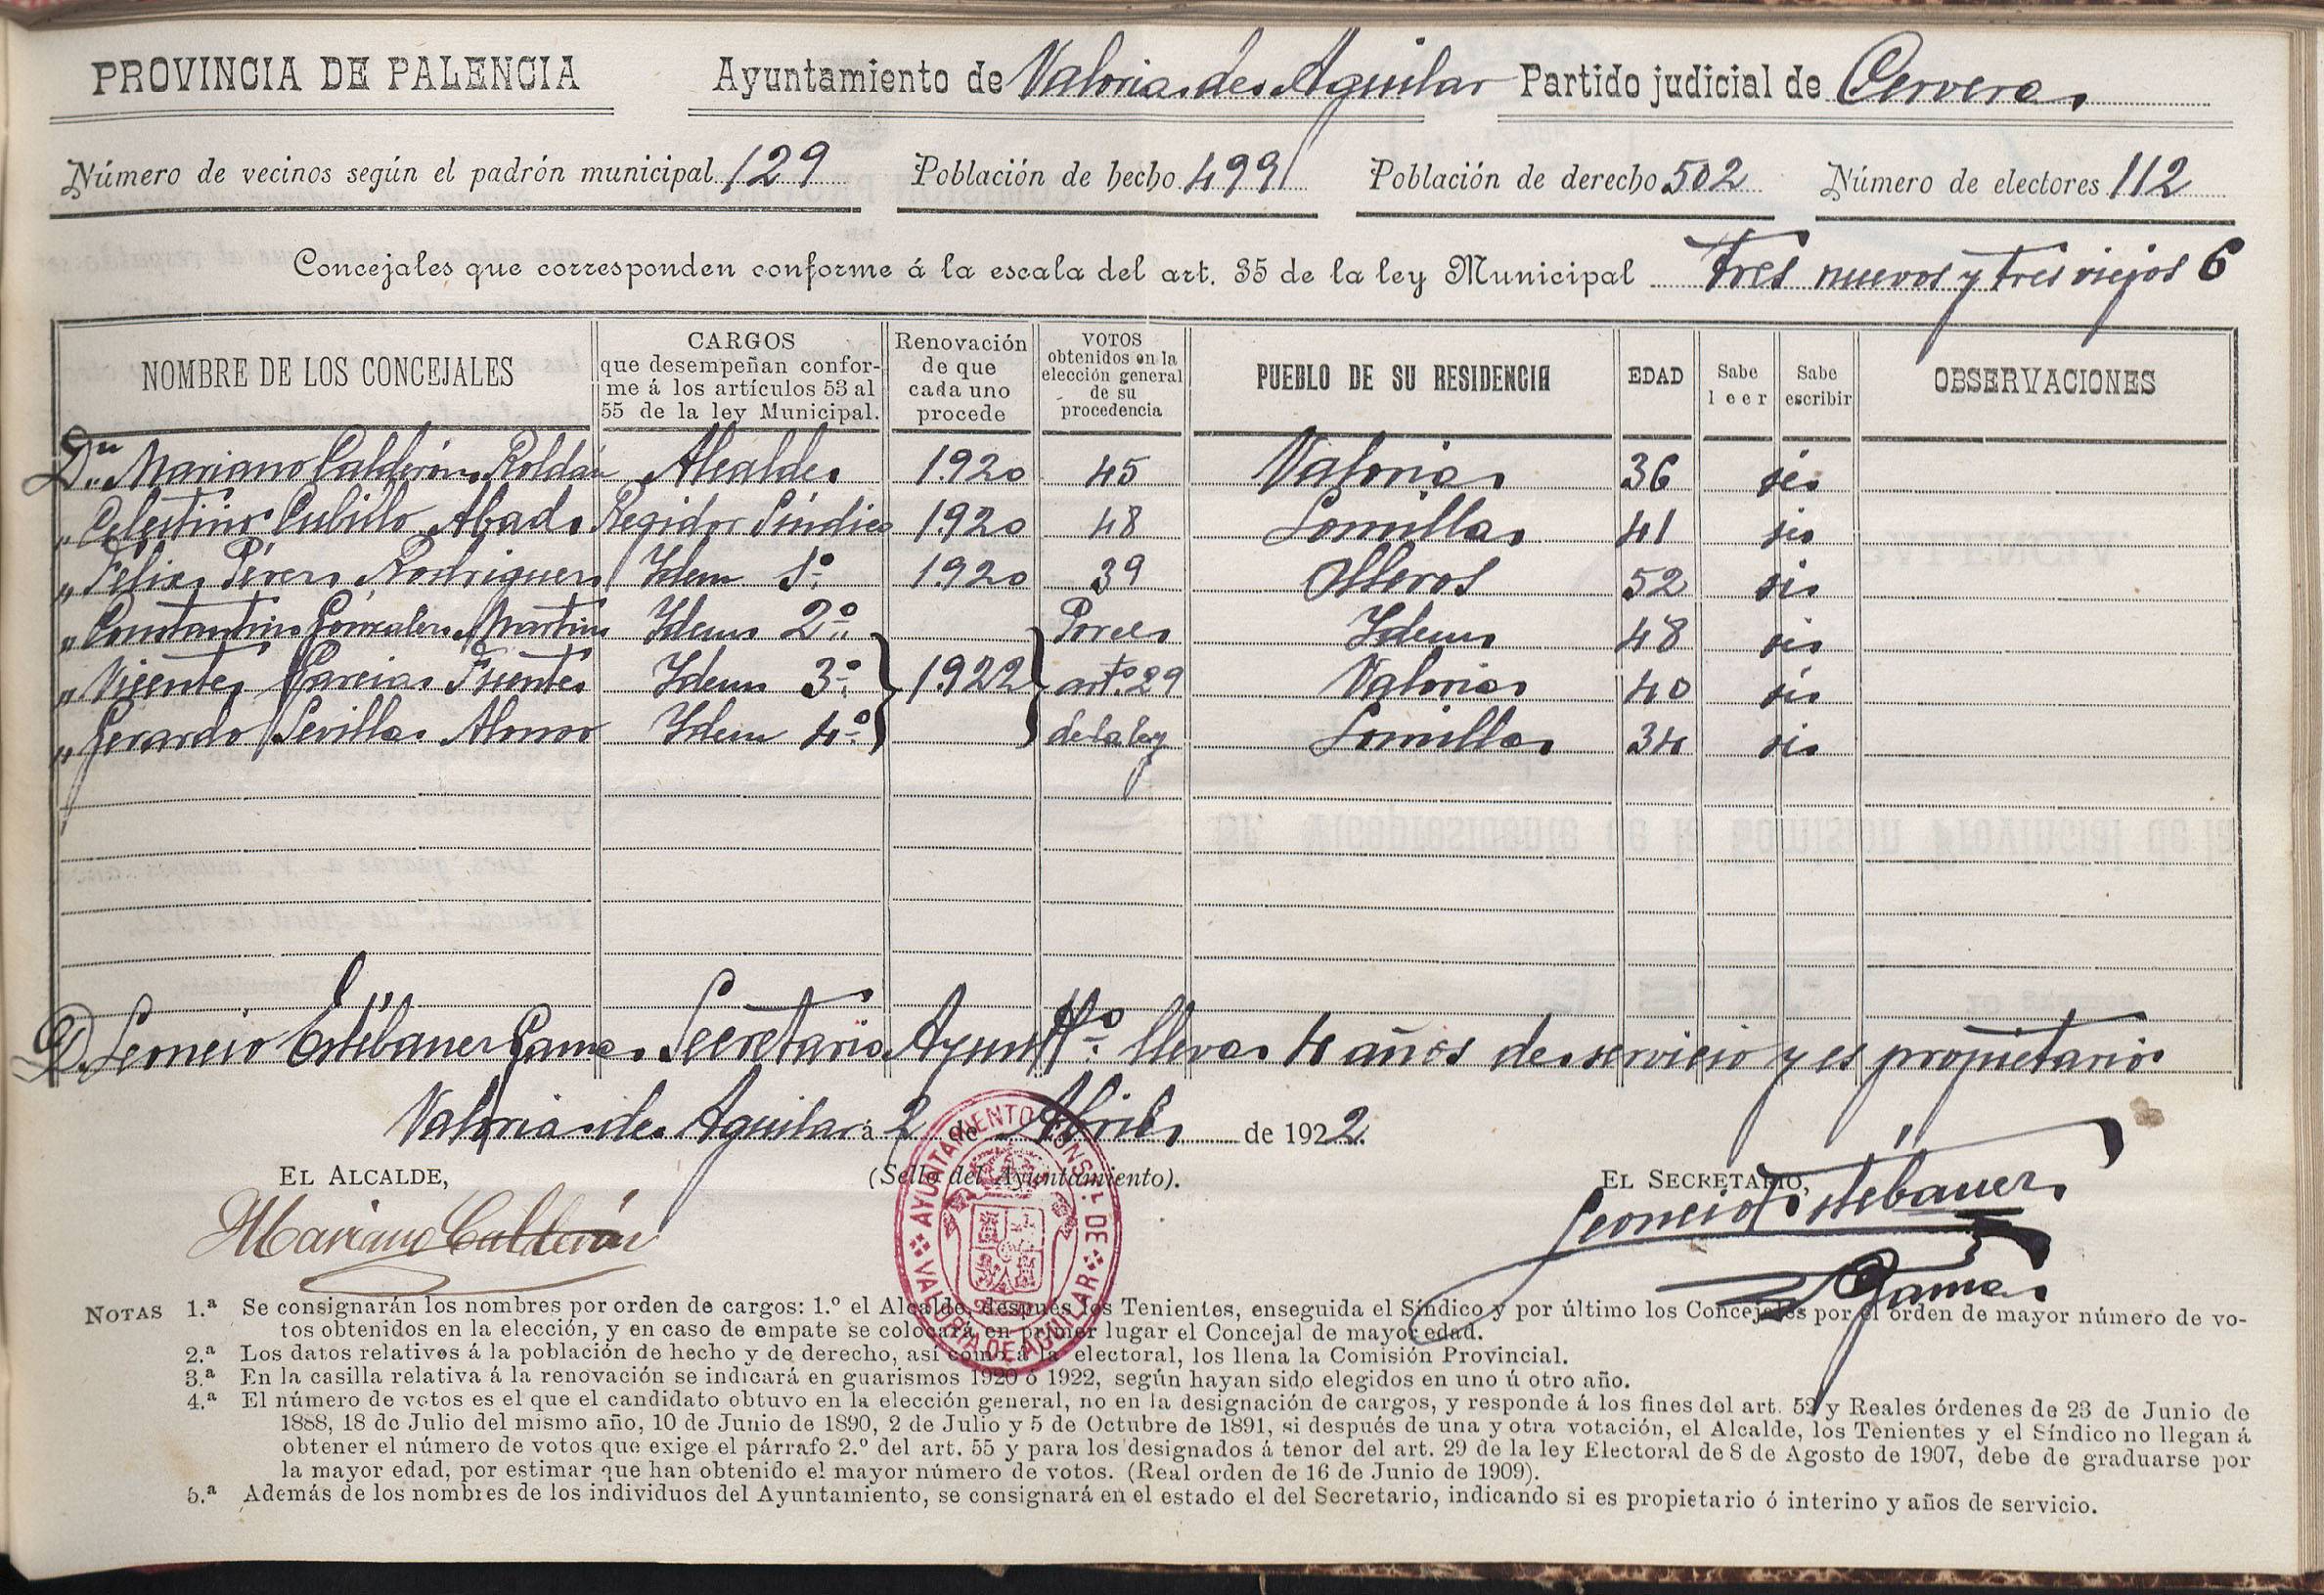 PROVINCIA DE PALENCIA Ayuntamiento de Valoria de Aguilar Partido judicial de Cervera
Número de vecinos según el padrón municipal 129 Población de hecho 499 Población de derecho 502 Número de electores 112
Concejales que corresponden conforme á la escala del art. 35 de la ley Municipal tres nuevos y tres viejos 6
NOMBRE DE LOS CONCEJALES CARGOS que desempeñan conforme á los artículos 53 al 55 de la ley Municipal. Renovación de que cada uno procede VOTOS obtenidos en la elección general de su procedencia PUEBLO DE SU RESIDENCIA EDAD Sabe leer Sabe escribir OBSERVACIONES
Dn Mariano Calderón Roldán Alcalde 1920 45 Valoria 36 si
„ Celestino Cubillo Abad Regidor Síndico 1920 48 Lomilla 41 si
„ Félix Pérez Rodriguez Idem 1º 1920 39 Olleros 52 si
„ Constantino Gonzalez Martin Idem 2º Por el Idem 48 si
„ Vicente Garcia Fuente Idem 3º 1922 artº 29 Valoria 40 si
„ Gerardo Sevilla Alonso Idem 4º de la ley Lomilla 34 si
D. Leoncio Estébanez Gama Secretario Ayuntº lleva 4 años de servicio y es propietario
Valoria de Aguilar á 2 de Abril de 1922.
EL ALCALDE, (Sello del Ayuntamiento). EL SECRETARIO,
Mariano Calderón
Leoncio Estébanez
Gama
AYUNTAMIENTO CONSTL DE VALORIA DE AGUILAR
NOTAS 1.ª Se consignarán los nombres por orden de cargos: 1.º el Alcalde, después los Tenientes, enseguida el Síndico y por último los Concejales por el orden de mayor número de vo-
tos obtenidos en la elección, y en caso de empate se colocará en primer lugar el Concejal de mayor edad.
2.ª Los datos relativos á la población de hecho y de derecho, así como á la electoral, los llena la Comisión Provincial.
3.ª En la casilla relativa á la renovación se indicará en guarismos 1920 ó 1922, según hayan sido elegidos en uno ú otro año.
4.ª El número de votos es el que el candidato obtuvo en la elección general, no en la designación de cargos, y responde á los fines del art. 52 y Reales órdenes de 23 de Junio de
1888, 18 de Julio del mismo año, 10 de Junio de 1890, 2 de Julio y 5 de Octubre de 1891, si después de una y otra votación, el Alcalde, los Tenientes y el Síndico no llegan á
obtener el número de votos que exige el párrafo 2.º del art. 55 y para los designados á tenor del art. 29 de la ley Electoral de 8 de Agosto de 1907, debe de graduarse por
la mayor edad, por estimar que han obtenido el mayor número de votos. (Real orden de 16 de Junio de 1909).
5.ª Además de los nombres de los individuos del Ayuntamiento, se consignará en el estado el del Secretario, indicando si es propietario ó interino y años de servicio.